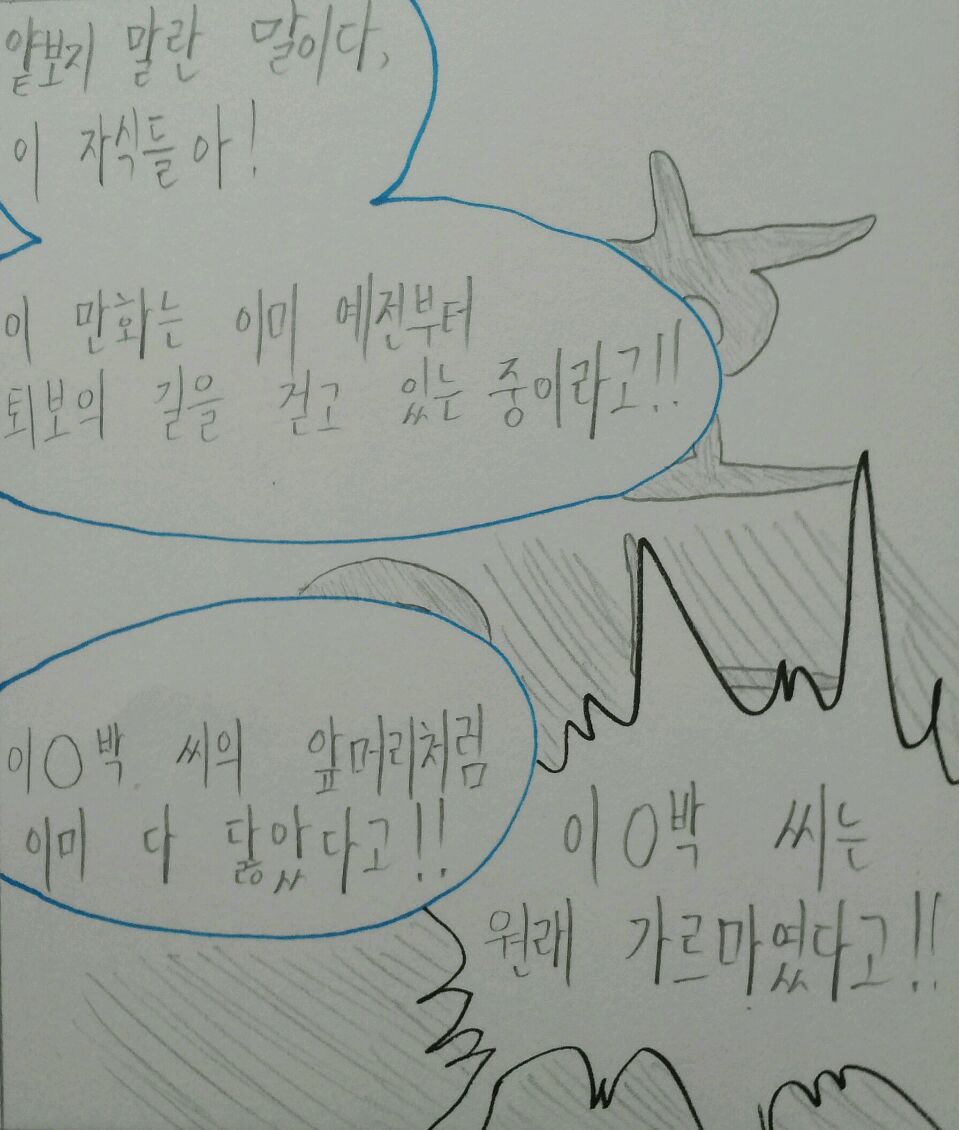 얕보지 말란 말이다,
이 자식들아!
이 만화는 이미 예전부터
퇴보의 길을 걷고 있는 중이라고!!
이○박 씨의 앞머리처럼
이미 다 닳았다고!!
이○박 씨는
원래 가르마였다고!!